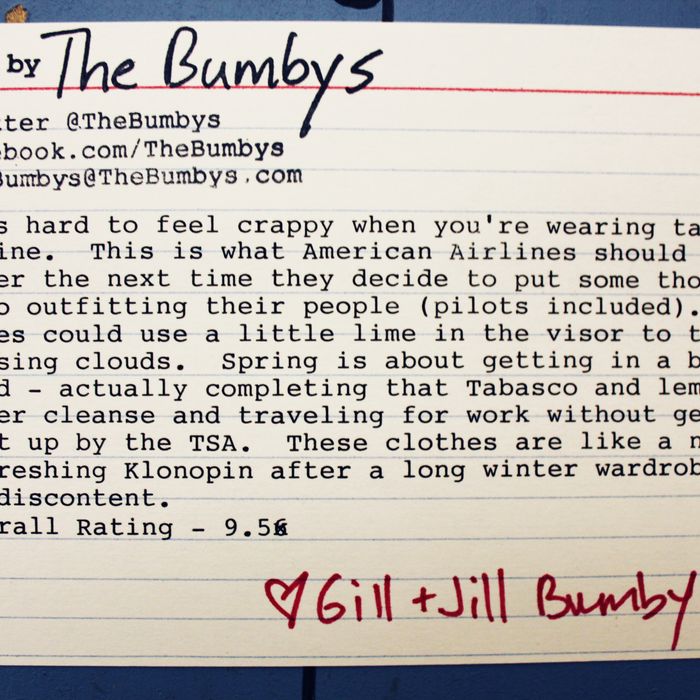 by The Bumbys
tter @TheBumbys
ebook.com/TheBumbys
Bumbys@TheBumbys.com
s hard to feel crappy when you're wearing ta
ine. This is what American Airlines should
er the next time they decide to put some tho
o outfitting their people (pilots included).
es could use a little lime in the visor to t
sing clouds. Spring is about getting in a b
d - actually completing that Tabasco and lem
er cleanse and traveling for work without ge
t up by the TSA. These clothes are like a n
reshing Klonopin after a long winter wardrob
discontent.
rall Rating - 9.5
♡ Gill + Jill Bumby